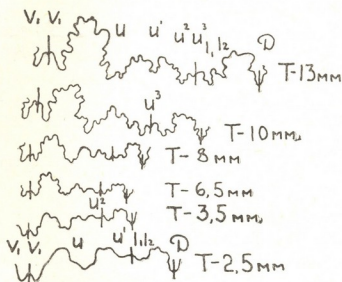 V₁ V₁ U U¹ U² U³ I₁ I₂ D
T-13мм
U³ T-10мм
T-8мм
T-6,5мм
U²
T-3,5мм
V₁ V₁ U U¹ I₁ I₂ D T-2,5мм